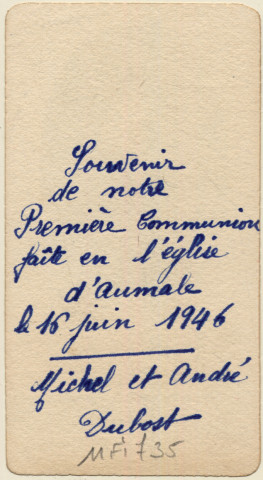 Souvenir
de notre
Première Communion
faite en l'église
d'Aumale
le 16 juin 1946
Michel et André
Dubost
11Fi735